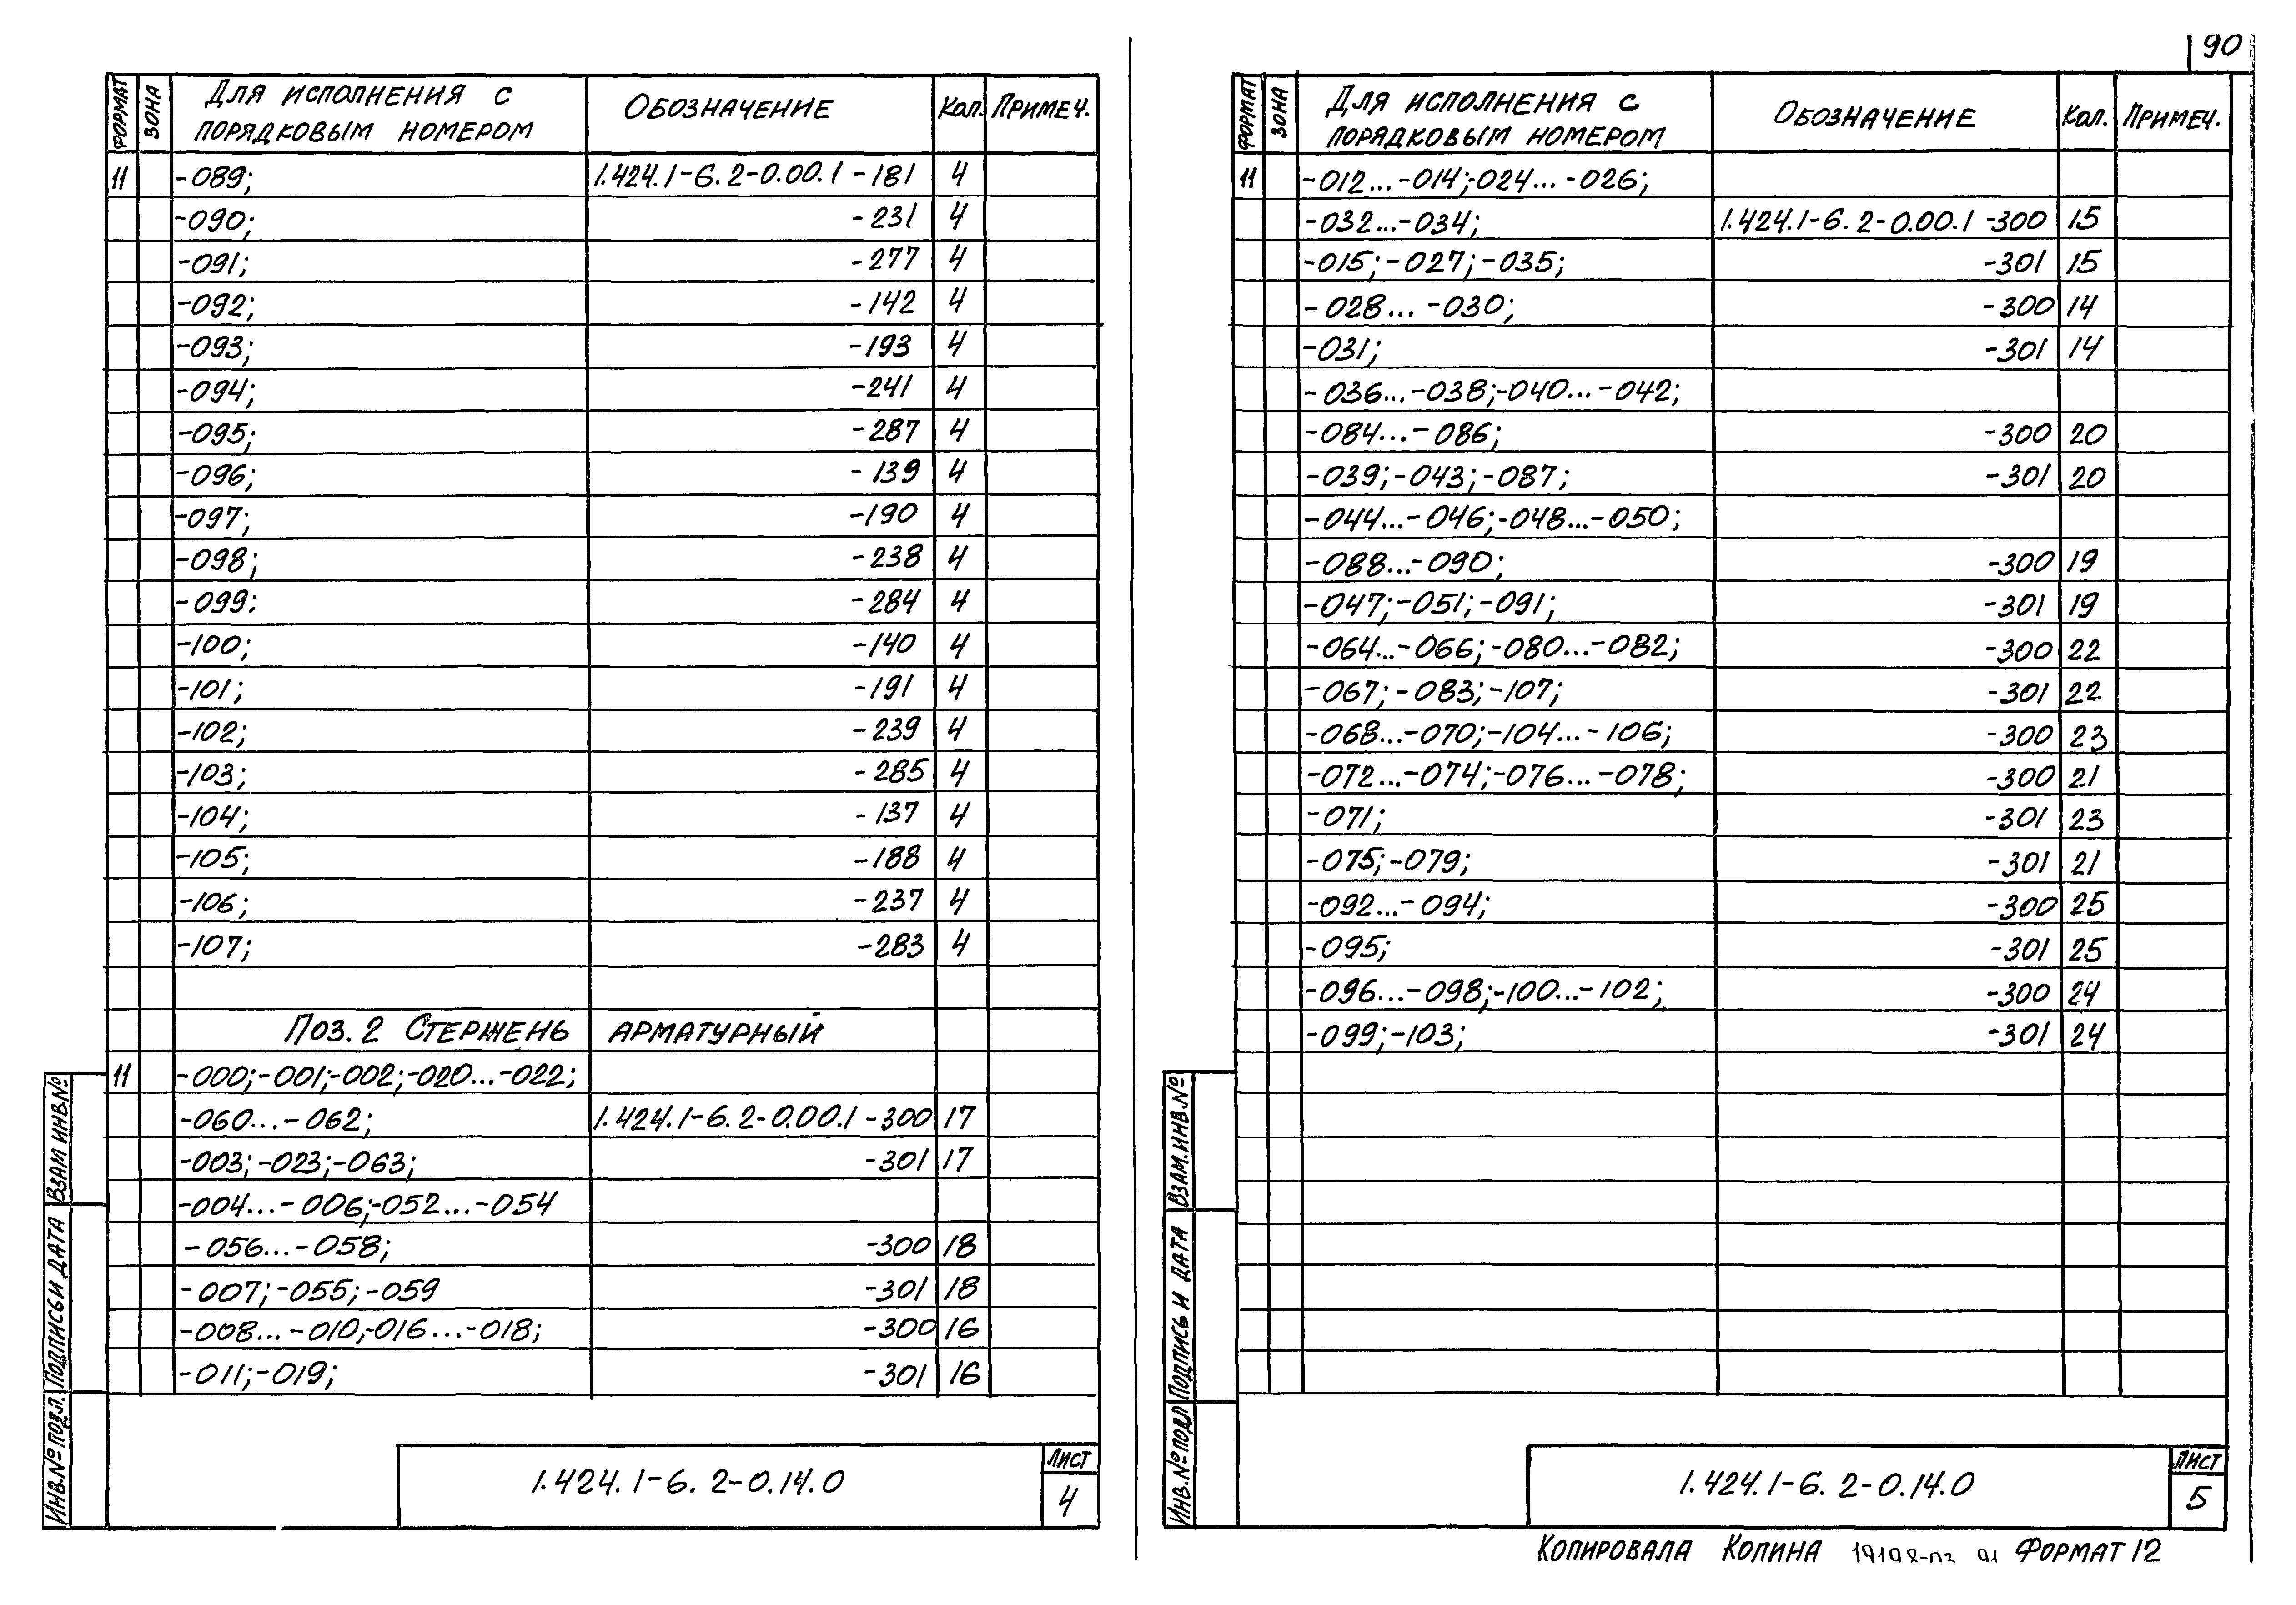 90
ФОРМАТ ЗОНА Для исполнения с порядковым номером Обозначение Кол. Примеч.
11 -089; 1.424.1-6.2-0.00.1 -181 4
-090; -231 4
-091; -277 4
-092; -142 4
-093; -193 4
-094; -241 4
-095; -287 4
-096; -139 4
-097; -190 4
-098; -238 4
-099: -284 4
-100; -140 4
-101; -191 4
-102; -239 4
-103; -285 4
-104; -137 4
-105; -188 4
-106; -237 4
-107; -283 4
Поз. 2 Стержень арматурный
11 -000;-001;-002;-020...-022;
-060...-062; 1.424.1-6.2-0.00.1 -300 17
-003;-023;-063; -301 17
-004...-006;-052...-054
-056...-058; -300 18
-007;-055;-059 -301 18
-008...-010;-016...-018; -300 16
-011;-019; -301 16
Инв.№ подл. Подпись и дата Взам инв.№
1.424.1-6.2-0.14.0
Лист
4
ФОРМАТ ЗОНА Для исполнения с порядковым номером Обозначение Кол. Примеч.
11 -012...-014;-024...-026;
-032...-034; 1.424.1-6.2-0.00.1 -300 15
-015;-027;-035; -301 15
-028...-030; -300 14
-031; -301 14
-036...-038;-040...-042;
-084...-086; -300 20
-039;-043;-087; -301 20
-044...-046;-048...-050;
-088...-090; -300 19
-047;-051;-091; -301 19
-064...-066;-080...-082; -300 22
-067;-083;-107; -301 22
-068...-070;-104...-106; -300 23
-072...-074;-076...-078; -300 21
-071; -301 23
-075;-079; -301 21
-092...-094; -300 25
-095; -301 25
-096...-098;-100...-102; -300 24
-099;-103; -301 24
Инв.№ подл Подпись и дата Взам.инв.№
1.424.1-6.2-0.14.0
Лист
5
Копировала Копина Формат 12